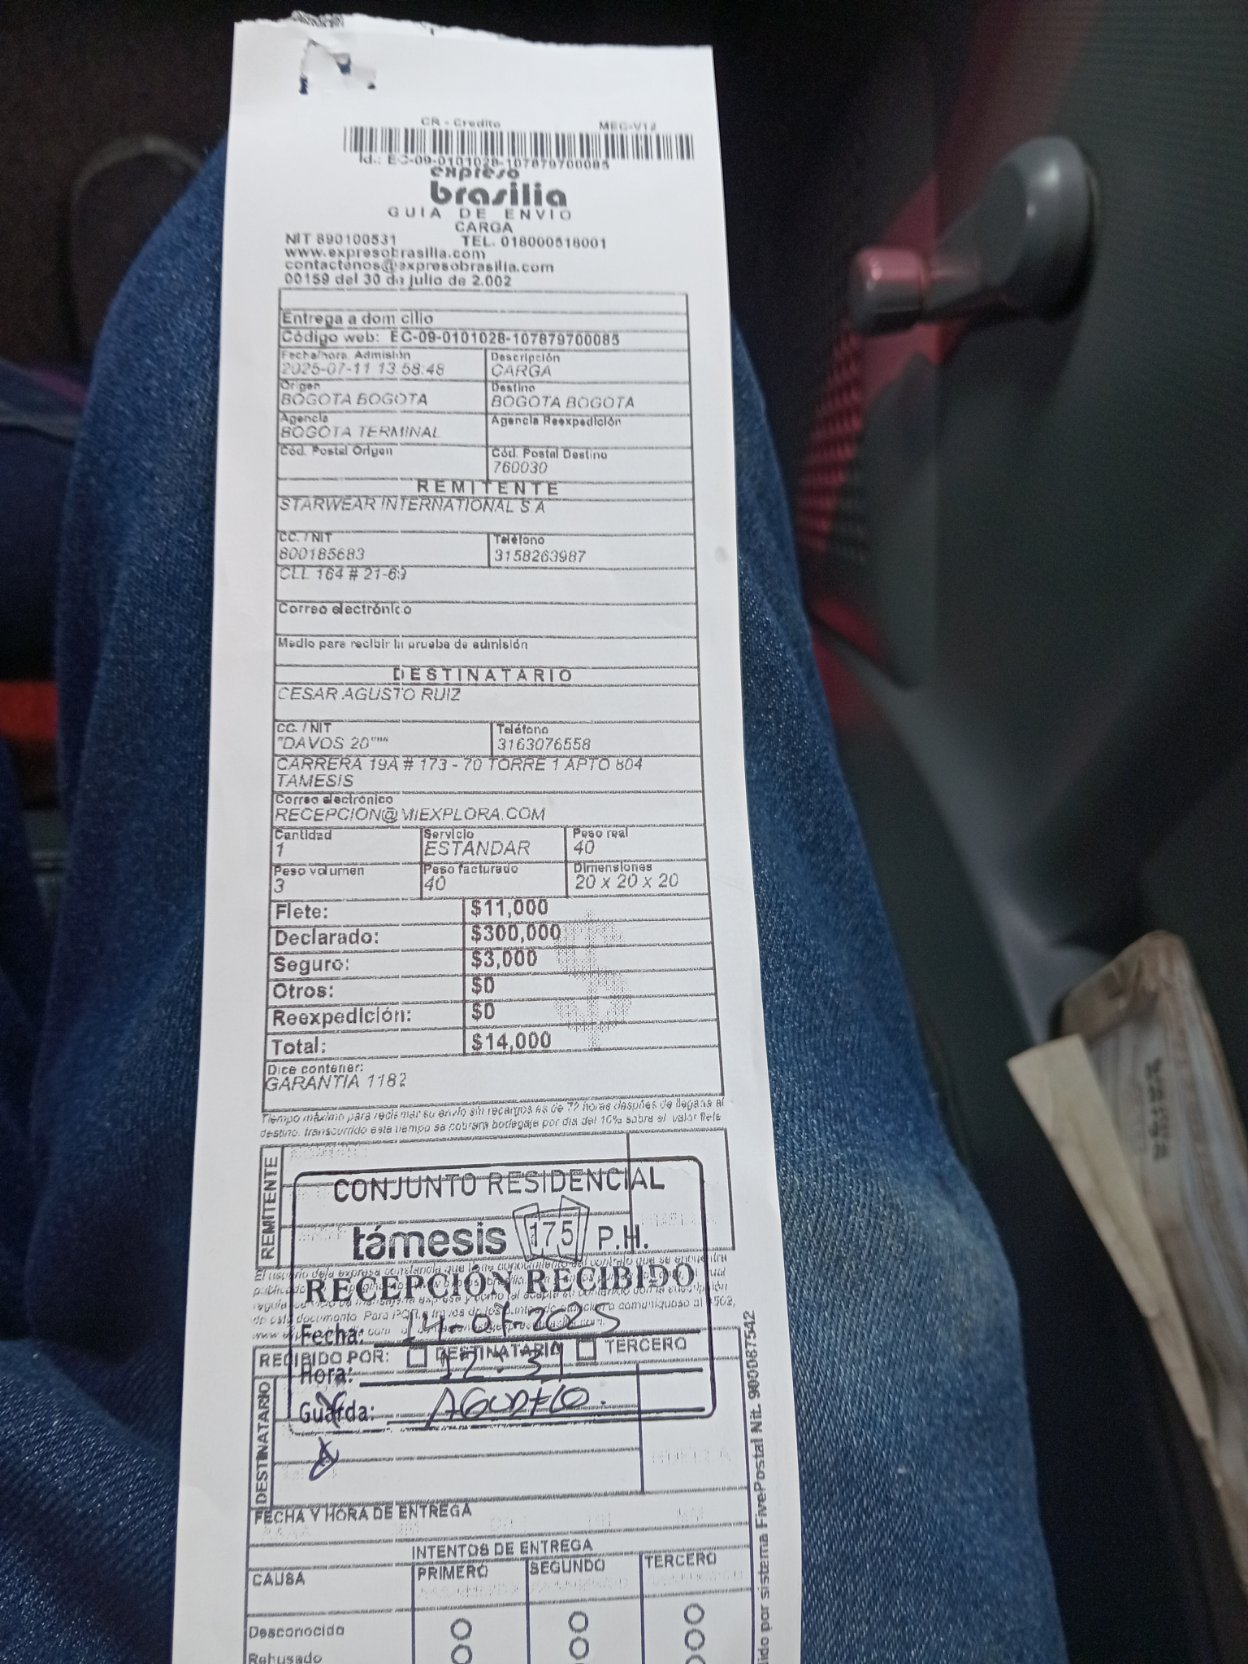 CR - Credito MEC-V12
Id.: EC-09-0101028-107879700085
expreso
brasilia
GUIA DE ENVIO
CARGA
NIT 890100531 TEL. 018000518001
www.expresobrasilia.com
contactenos@expresobrasilia.com
00159 del 30 de julio de 2.002
Entrega a domicilio
Código web: EC-09-0101028-107879700085
Fecha/hora Admisión Descripción
2025-07-11 13:58:48 CARGA
Origen Destino
BOGOTA BOGOTA BOGOTA BOGOTA
Agencia Agencia Reexpedición
BOGOTA TERMINAL
Cód. Postal Origen Cód. Postal Destino
760030
REMITENTE
STARWEAR INTERNATIONAL S A
CC. / NIT Teléfono
800185683 3158263987
CLL 164 # 21-69
Correo electrónico
Medio para recibir la prueba de admisión
DESTINATARIO
CESAR AGUSTO RUIZ
CC. / NIT Teléfono
"DAVOS 20""" 3163076558
CARRERA 19A # 173 - 70 TORRE 1 APTO 804
TAMESIS
Correo electrónico
RECEPCION@MIEXPLORA.COM
Cantidad Servicio Peso real
1 ESTANDAR 40
Peso volumen Peso facturado Dimensiones
3 40 20 x 20 x 20
Flete: $11,000
Declarado: $300,000
Seguro: $3,000
Otros: $0
Reexpedición: $0
Total: $14,000
Dice contener:
GARANTIA 1182
Tiempo máximo para reclamar su envío sin recargos es de 72 horas después de llegada al
destino, transcurrido este tiempo se cobrara bodegaje por dia del 10% sobre el valor flete
REMITENTE
CONJUNTO RESIDENCIAL
támesis 175 P.H.
RECEPCIÓN RECIBIDO
Fecha: 14-07-2025
RECIBIDO POR: DESTINATARIO TERCERO
Hora: 12:37
Guarda: AGUDELO.
DESTINATARIO
FECHA Y HORA DE ENTREGA
INTENTOS DE ENTREGA
CAUSA PRIMERO SEGUNDO TERCERO
Desconocido
Rehusado
por sistema FivePostal Nit. 900087542